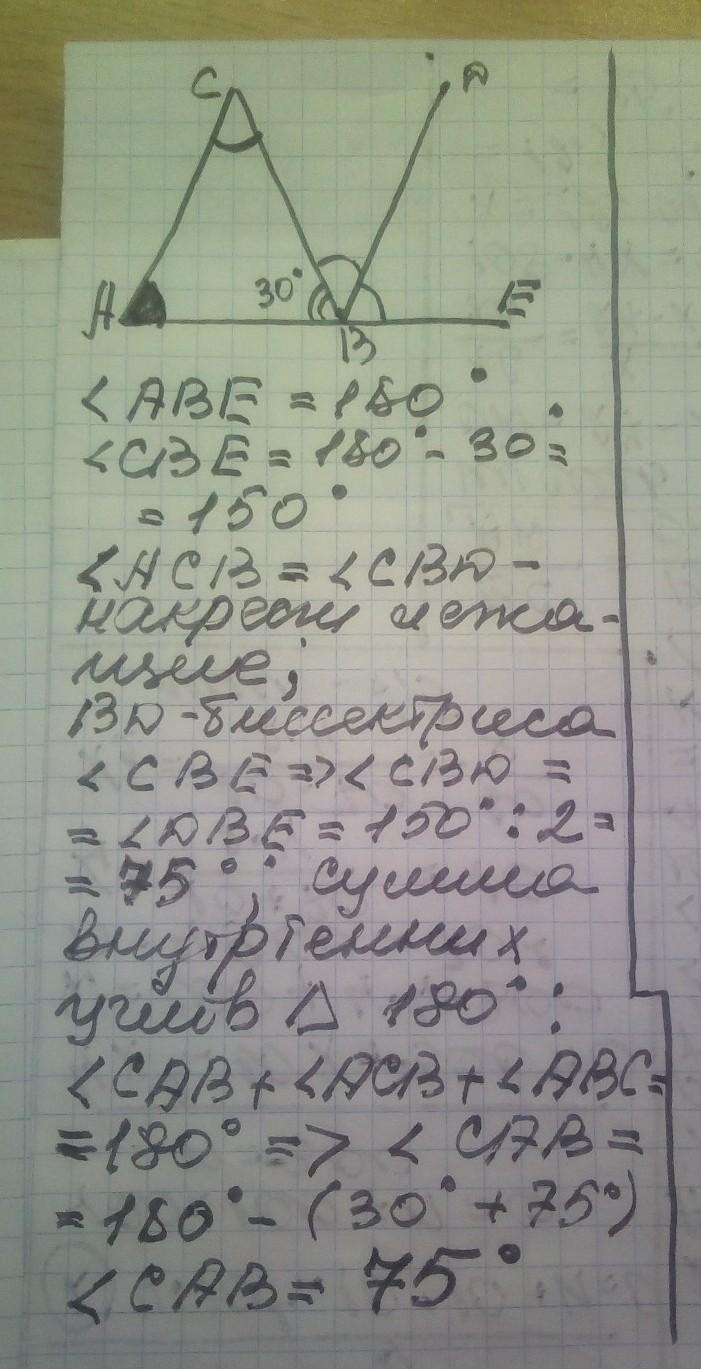 C D
30°
A B E
∠ABE = 180°
∠CBE = 180° - 30° =
= 150°
∠ACB = ∠CBD -
накрест лежа-
щие;
BD - биссектриса
∠CBE => ∠CBD =
= ∠DBE = 150° : 2 =
= 75°; сумма
внутренних
углов △ 180°:
∠CAB + ∠ACB + ∠ABC =
= 180° => ∠CAB =
= 180° - (30° + 75°)
∠CAB = 75°